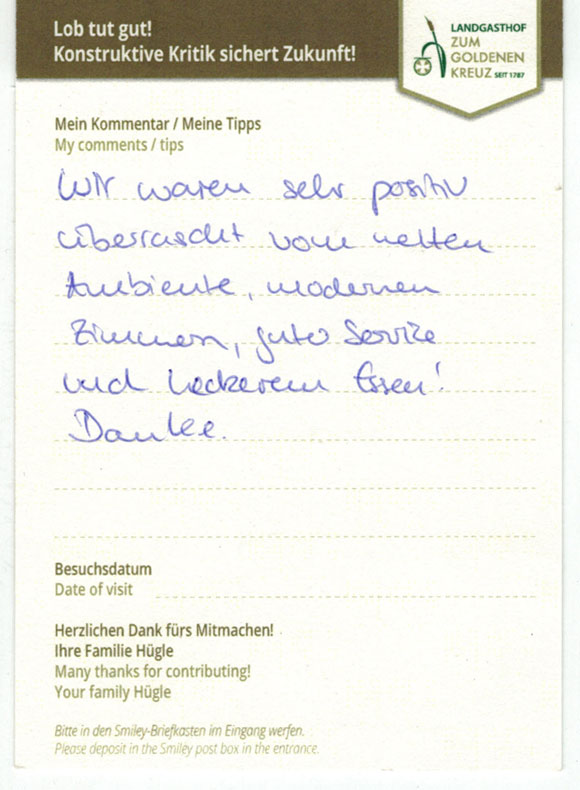 Lob tut gut!
Konstruktive Kritik sichert Zukunft!
LANDGASTHOF
ZUM
GOLDENEN
KREUZ SEIT 1787
Mein Kommentar / Meine Tipps
My comments / tips
Wir waren sehr positiv
überrascht vom netten
Ambiente, modernen
Zimmern, guter Service
und leckerem Essen!
Danke.
Besuchsdatum
Date of visit
Herzlichen Dank fürs Mitmachen!
Ihre Familie Hügle
Many thanks for contributing!
Your family Hügle
Bitte in den Smiley-Briefkasten im Eingang werfen.
Please deposit in the Smiley post box in the entrance.